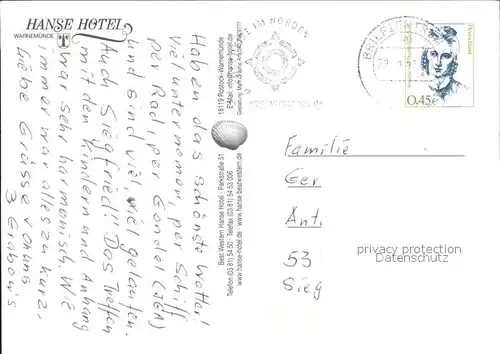 HANSE HOTEL
WARNEMÜNDE
Haben das schönste Wetter!
Viel unternomen, per Schiff
per Rad, per Gondel (IGA)
und sind viel, viel gelaufen.
Auch Siegfried! Das Treffen
mit den Kindern und Anhang
war sehr harmonisch. Wie
immer war alles zu kurz.
Liebe Grüsse v. uns
3 Grabow's
Best Western Hanse Hotel · Parkstraße 51
18119 Rostock-Warnemünde
Telefon (03 81) 54 50 · Telefax (03 81) 54 53 006
E-Mail: info@hanse-hotel.de
www.hanse-hotel.de · www.bestwestern.de
IM NORDEN
Deutschland
0,45€
Familie
Ger
Ant.
53
Sieg
privacy protection
Datenschutz